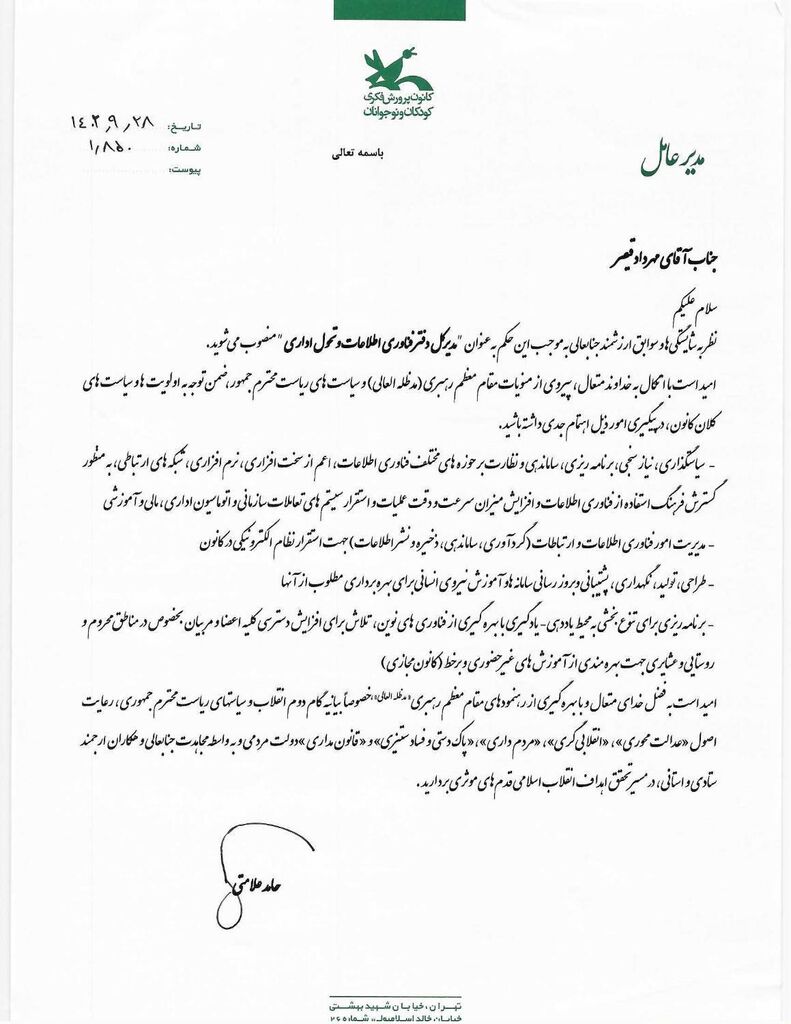 کانون پرورش فکری
کودکان و نوجوانان
تاریخ: ۱۴۰۲٫۹٫۲۸
شماره: ۱٫۸۵۰
پیوست:
باسمه تعالی
مدیر عامل
جناب آقای مهرداد قیصر
سلام علیکم
نظر به شایستگی‌ها و سوابق ارزشمند جنابعالی به موجب این حکم به عنوان "مدیرکل دفتر فناوری اطلاعات و تحول اداری" منصوب می‌شوید.
امید است با اتکال به خداوند متعال، پیروی از منویات مقام معظم رهبری (مدظله العالی) و سیاست های ریاست محترم جمهور، ضمن توجه به اولویت ها و سیاست های
کلان کانون، در پیگیری امور ذیل اهتمام جدی داشته باشید.
- سیاستگذاری، نیاز سنجی، برنامه ریزی، ساماندهی و نظارت بر حوزه های مختلف فناوری اطلاعات، اعم از سخت افزاری، نرم افزاری، شبکه های ارتباطی، به منظور
گسترش فرهنگ استفاده از فناوری اطلاعات و افزایش میزان سرعت و دقت عملیات و استقرار سیستم های تعاملات سازمانی و اتوماسیون اداری، مالی و آموزشی
- مدیریت امور فناوری اطلاعات و ارتباطات (گردآوری، ساماندهی، ذخیره و نشر اطلاعات) جهت استقرار نظام الکترونیکی در کانون
- طراحی، تولید، نگهداری، پشتیبانی و بروز رسانی سامانه ها و آموزش نیروی انسانی برای بهره برداری مطلوب از آنها
- برنامه ریزی برای تنوع بخشی به محیط یاددهی- یادگیری با بهره گیری از فناوری های نوین، تلاش برای افزایش دسترسی کلیه اعضا و مربیان بخصوص در مناطق محروم و
روستایی و عشایری جهت بهره مندی از آموزش های غیر حضوری و برخط (کانون مجازی)
امید است به فضل خدای متعال و با بهره گیری از رهنمودهای مقام معظم رهبری «مدظله العالی»، خصوصاً بیانیه گام دوم انقلاب و سیاستهای ریاست محترم جمهوری، رعایت
اصول «عدالت محوری»، «انقلابی گری»، «مردم داری»، «پاک دستی و فساد ستیزی» و «قانون مداری» دولت مردمی و به واسطه مجاهدت جنابعالی و همکاران ارجمند
ستادی و استانی، در مسیر تحقق اهداف انقلاب اسلامی قدم های موثری بردارید.
حامد علامتی
تهران، خیابان شهید بهشتی
خیابان خالد اسلامبولی، شماره ۲۶